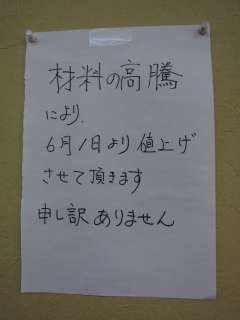 材料の高騰
により.
6月1日より値上げ
させて頂きます
申し訳ありません